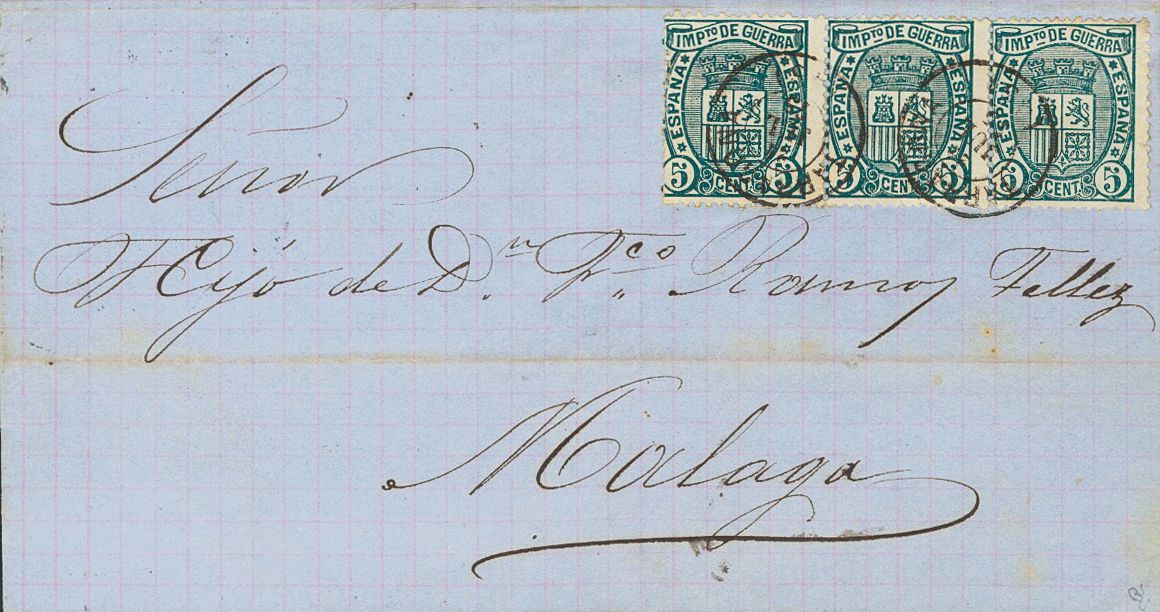 IMPTO DE GUERRA IMPTO DE GUERRA IMPTO DE GUERRA
ESPAÑA ESPAÑA ESPAÑA ESPAÑA ESPAÑA ESPAÑA
5 CENT. 5 5 CENT. 5 5 CENT. 5
Señor
Hijo de D.n F.co Ramos Tellez
Malaga